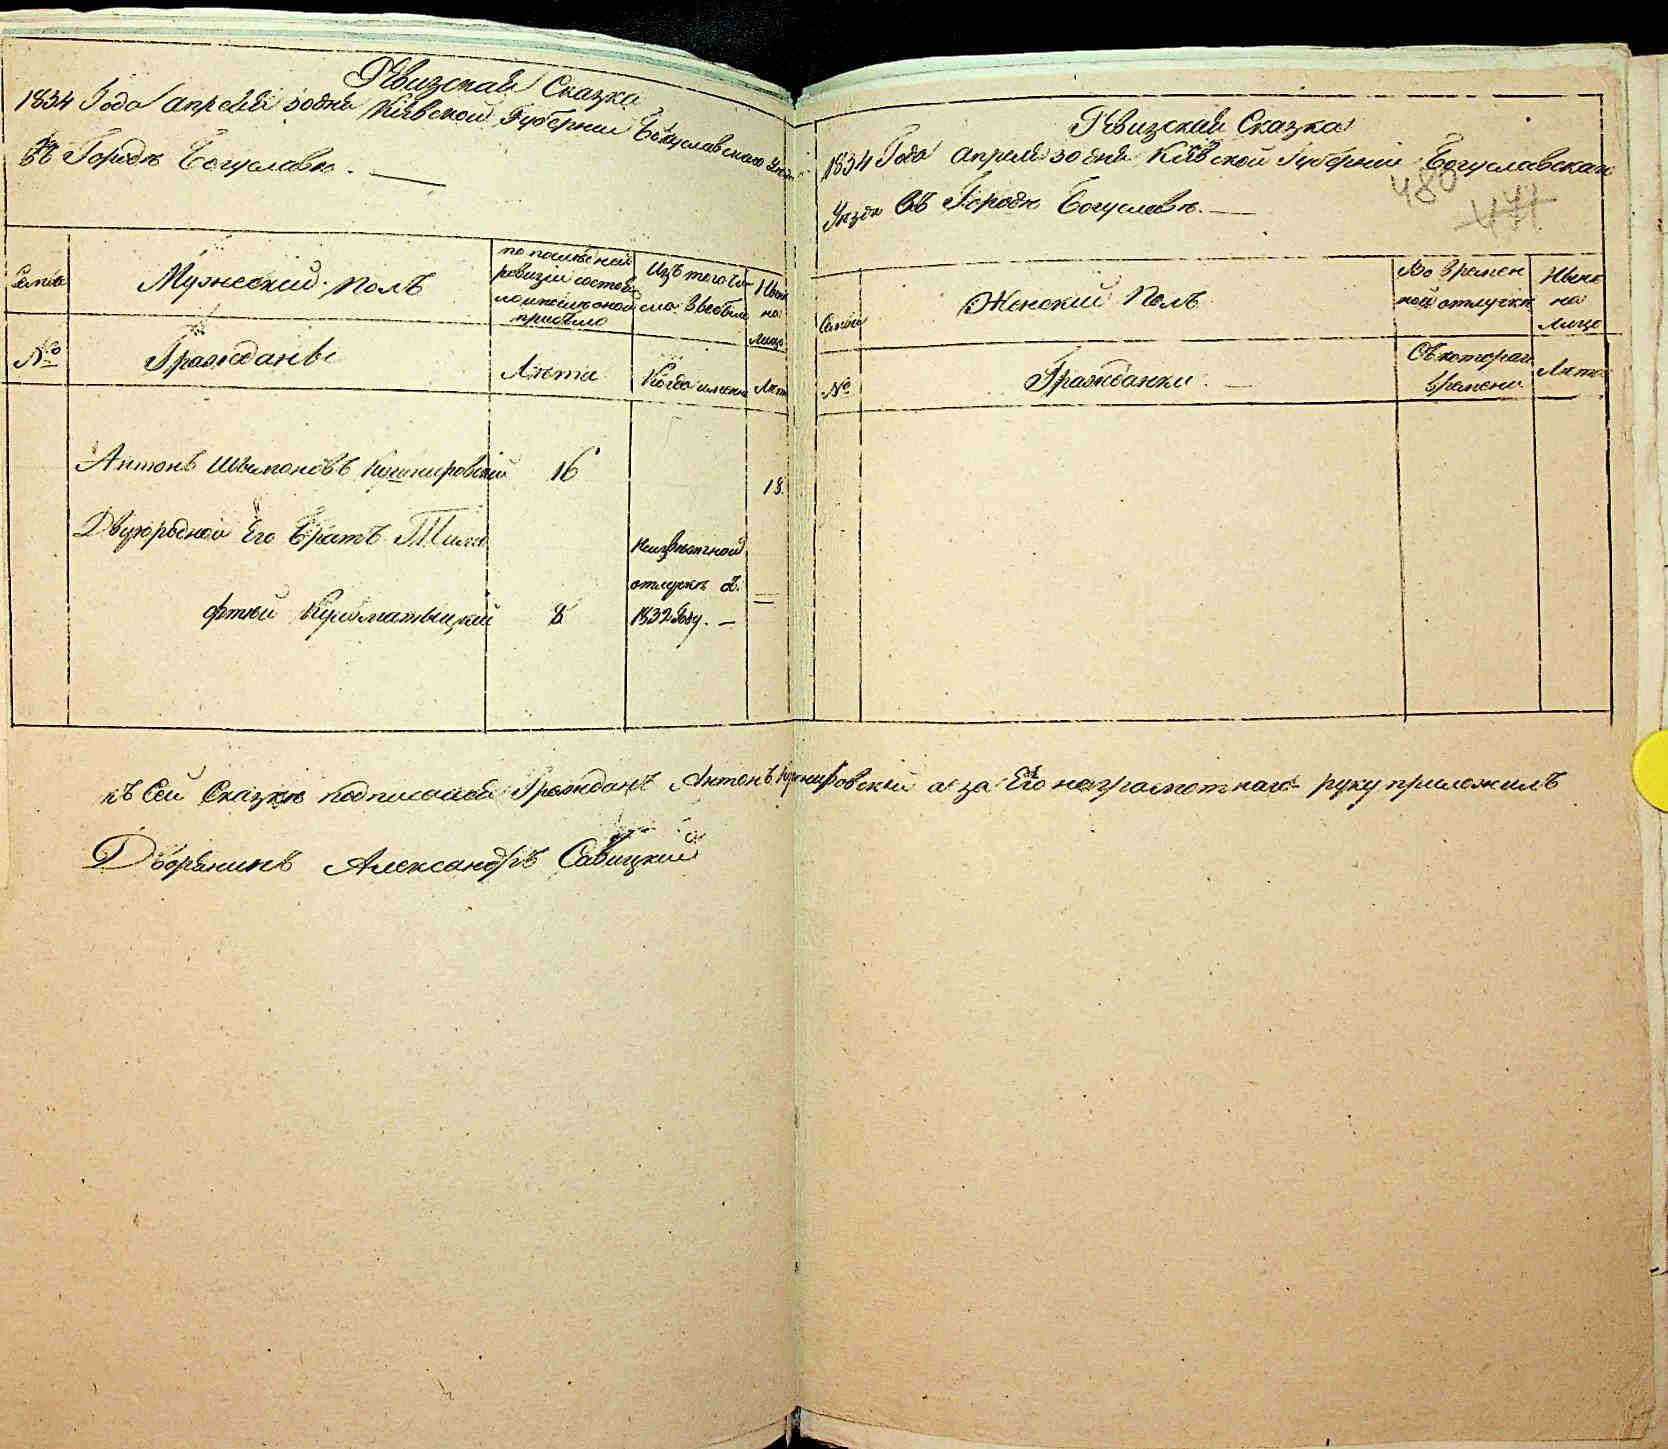 Ревизская Сказка
1834 Года апреля 30 дня Кіевской Губерніи Богуславского Уезда
Въ Городе Богуславе. —
Семьи
Мужеский полъ
по последней
ревизіи состоя
ло и после оной
прибыло
Изъ того Чи
сла выбыло
Ныне
на
лицо
№
Граждане
Лета
Когда именно
Лета
Антонъ Шимоновъ Кушнировскій 16 18.
Двуюродной Его Братъ Тимо
фтей 8
Неизвестной
отлучке съ
1832 Году. —
Ревизская Сказка
1834 Года апреля 30 дня Кіевской Губерніи Богуславскаго
480
471
Уезда Въ Городе Богуславе. —
Семьи
Женский Полъ
Во Времен
ной отлучке
Ныне
на
лицо
№
Гражданки. —
Съ которого
времени
Лета
къ Сей Сказке подписался Гражданъ Антонъ Кушнировскій а за Его неграмотнаго руку приложилъ
Дворянинъ Александръ Савицкий